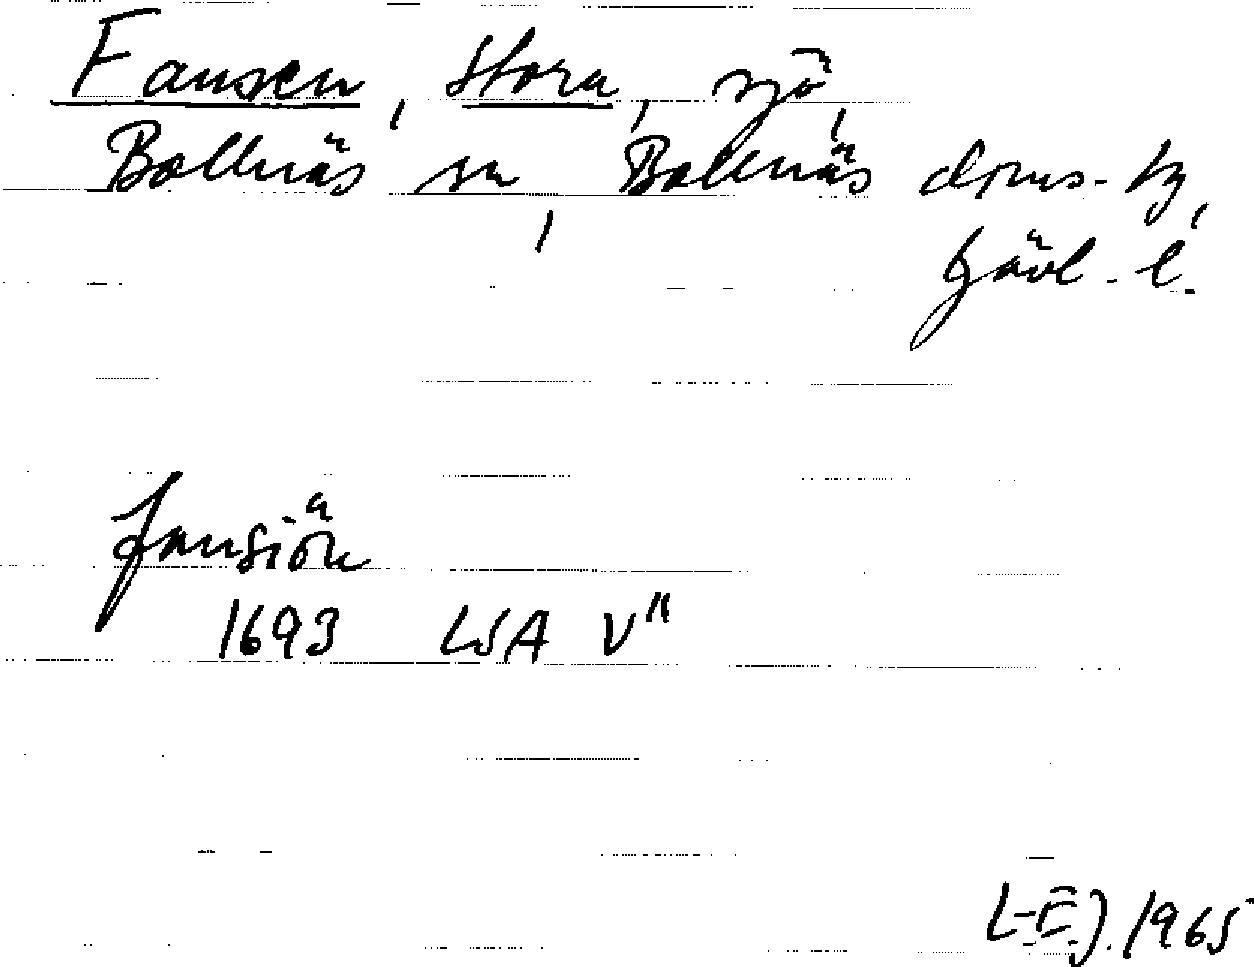 Fansen, Stora, sjö,
Bollnäs sn, Bollnäs doms. tg,
Gävl. l.
fansiön
1693 LSA V"
L-E J. 1965